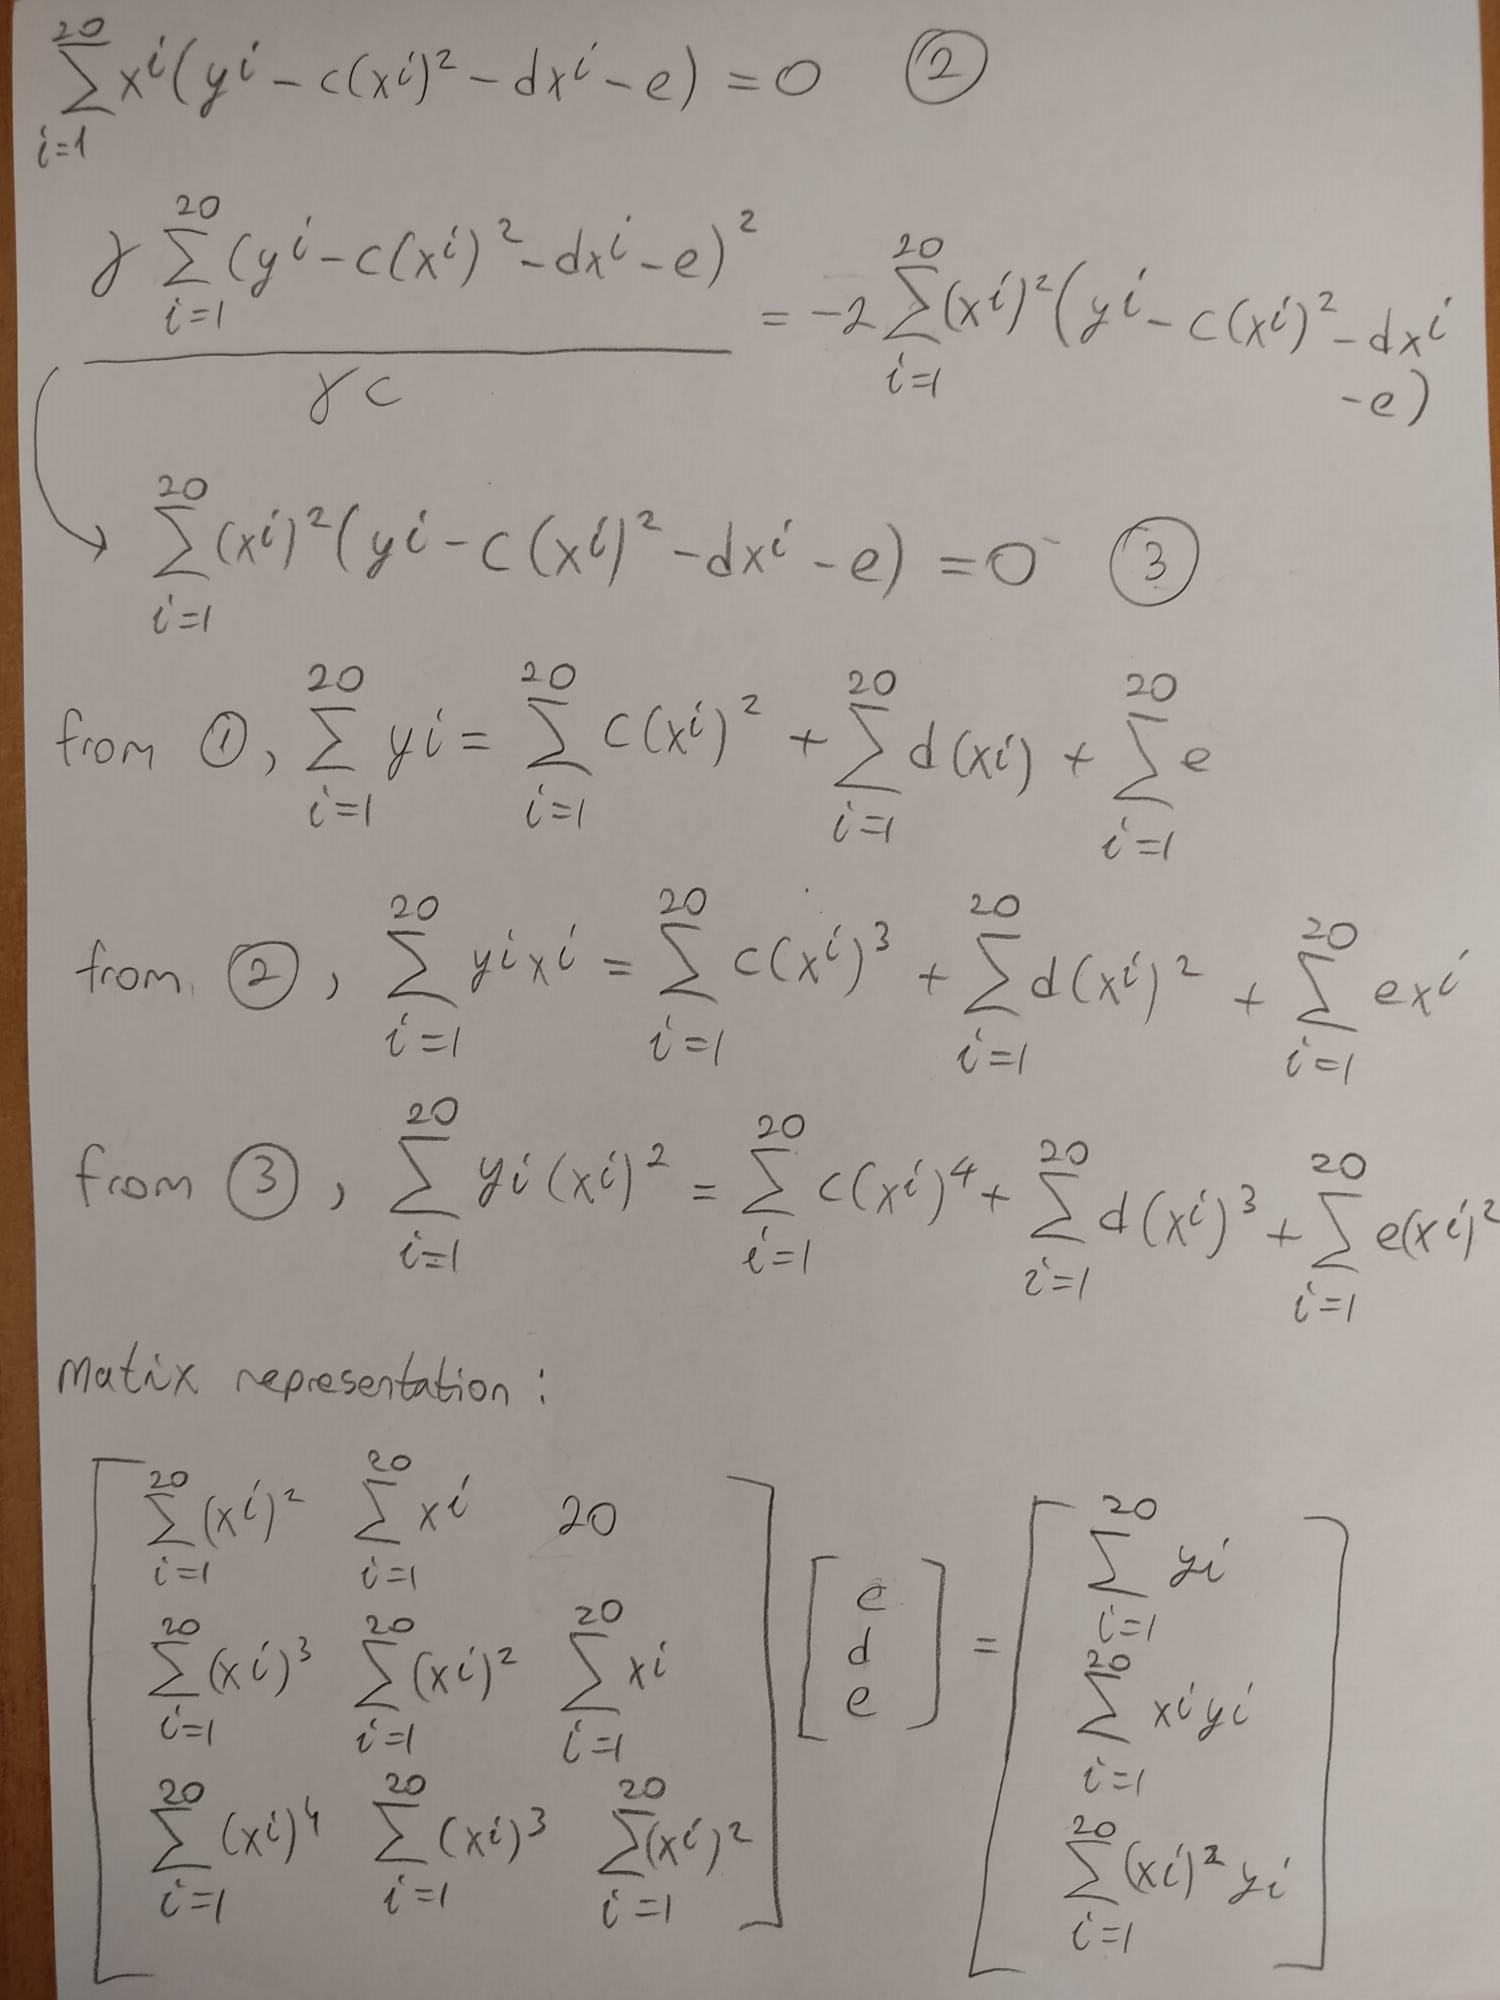 \sum_{i=1}^{20} x^i (y^i - c(x^i)^2 - dx^i - e) = 0 ②
\frac{\gamma \sum_{i=1}^{20} (y^i - c(x^i)^2 - dx^i - e)^2}{\gamma c} = -2 \sum_{i=1}^{20} (x^i)^2 (y^i - c(x^i)^2 - dx^i - e)
→ \sum_{i=1}^{20} (x^i)^2 (y^i - c(x^i)^2 - dx^i - e) = 0 ③
from ①, \sum_{i=1}^{20} y^i = \sum_{i=1}^{20} c(x^i)^2 + \sum_{i=1}^{20} d(x^i) + \sum_{i=1}^{20} e
from ②, \sum_{i=1}^{20} y^i x^i = \sum_{i=1}^{20} c(x^i)^3 + \sum_{i=1}^{20} d(x^i)^2 + \sum_{i=1}^{20} e x^i
from ③, \sum_{i=1}^{20} y^i (x^i)^2 = \sum_{i=1}^{20} c(x^i)^4 + \sum_{i=1}^{20} d(x^i)^3 + \sum_{i=1}^{20} e(x^i)^2
Matix representation :
\begin{bmatrix} \sum_{i=1}^{20} (x^i)^2 & \sum_{i=1}^{20} x^i & 20 \\ \sum_{i=1}^{20} (x^i)^3 & \sum_{i=1}^{20} (x^i)^2 & \sum_{i=1}^{20} x^i \\ \sum_{i=1}^{20} (x^i)^4 & \sum_{i=1}^{20} (x^i)^3 & \sum_{i=1}^{20} (x^i)^2 \end{bmatrix} \begin{bmatrix} c \\ d \\ e \end{bmatrix} = \begin{bmatrix} \sum_{i=1}^{20} y^i \\ \sum_{i=1}^{20} x^i y^i \\ \sum_{i=1}^{20} (x^i)^2 y^i \end{bmatrix}